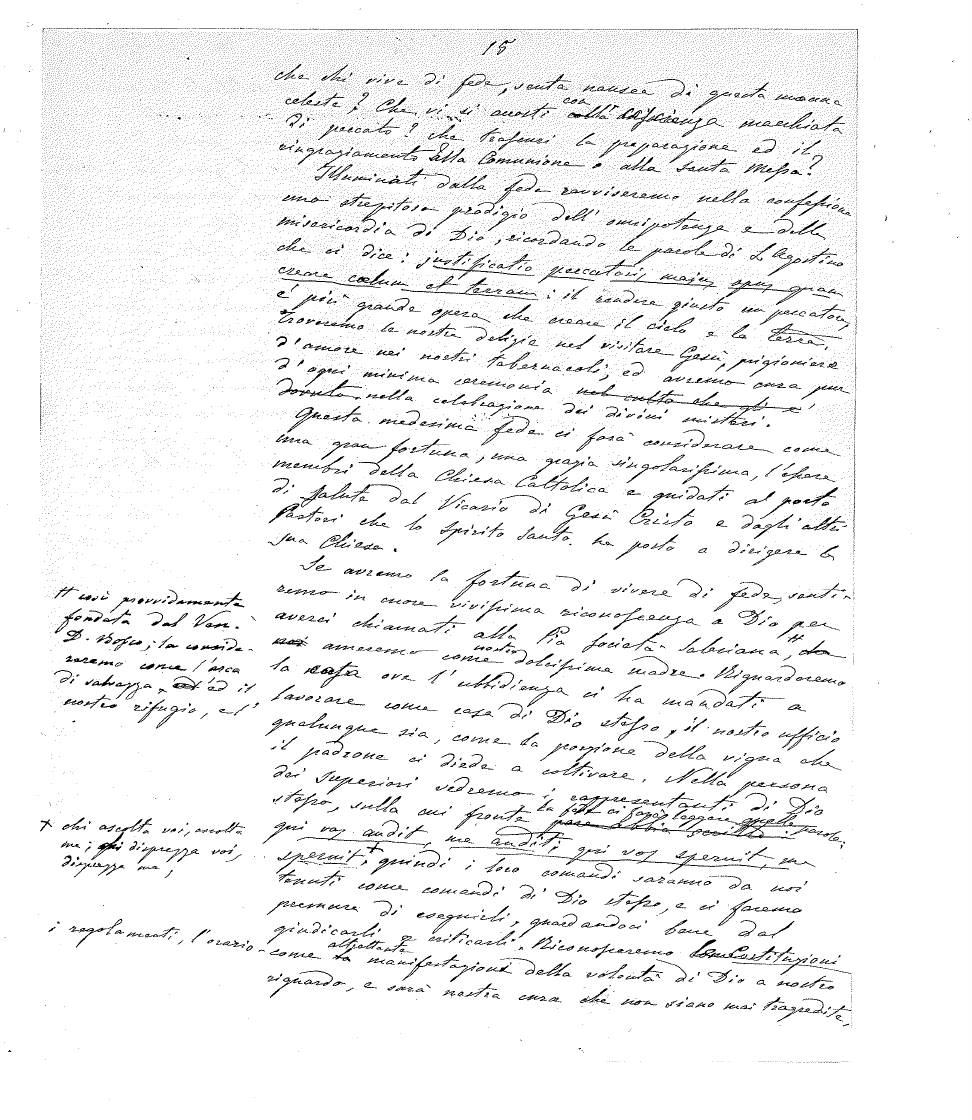 15
che chi vive di fede, senta nausea di questa manna
celeste? Che vi si accosti con coscienza macchiata
di peccato? che trascuri la preparazione ed il
ringraziamento alla Comunione e alla santa Messa?
Illuminati dalla fede ravviseremo nella confessione
uno strepitoso prodigio dell' onnipotenza e della
misericordia di Dio, ricordando le parole di S. Agostino
che ci dice: justificatio peccatoris, majus opus quam
creare coelum et terram: il rendere giusto un peccatore,
è più grande opera che creare il cielo e la terra.
Troveremo le nostre delizie nel visitare Gesù, prigioniero
d'amore nei nostri tabernacoli; ed avremo cura pur
d'ogni minima ceremonia nel culto che gli è
dovuto, nella celebrazione dei divini misteri.
Questa medesima fede ci farà considerare come
una gran fortuna, una grazia singolarissima, l'essere
membri della Chiesa Cattolica e guidati al porto
di salute dal Vicario di Gesù Cristo e dagli altri
Pastori che lo Spirito Santo ha posto a dirigere la
sua Chiesa.
Se avremo la fortuna di vivere di fede, senti-
remo in cuore vivissima riconoscenza a Dio per
averci chiamati alla Pia Società Salesiana, #
ameremo come nostra dolcissima madre. Riguarderemo
la casa ove l'ubbidienza ci ha mandati a
lavorare come casa di Dio stesso, il nostro ufficio
qualunque sia, come la porzione della vigna che
il padrone ci diede a coltivare. Nella persona
dei Superiori vedremo i rappresentanti di Dio
stesso, sulla cui fronte la fede ci farà leggere quelle parole:
qui vos audit, me audit; qui vos spernit, me
spernit + quindi i loro comandi saranno da noi
tenuti come comandi di Dio stesso, e ci faremo
premura di eseguirli, guardandoci bene dal
giudicarli e criticarli. Riconosceremo le Costituzioni
come altrettante manifestazioni della volontà di Dio a nostro
riguardo, e sarà nostra cura che non siano mai trasgredite,
# così provvidamente
fondata dal Ven.
D. Bosco; la conside-
reremo come l'arca
di salvezza, ed il
nostro rifugio, e l'
+ chi ascolta voi, ascolta
me; chi disprezza voi,
disprezza me,
i regolamenti, l'orario